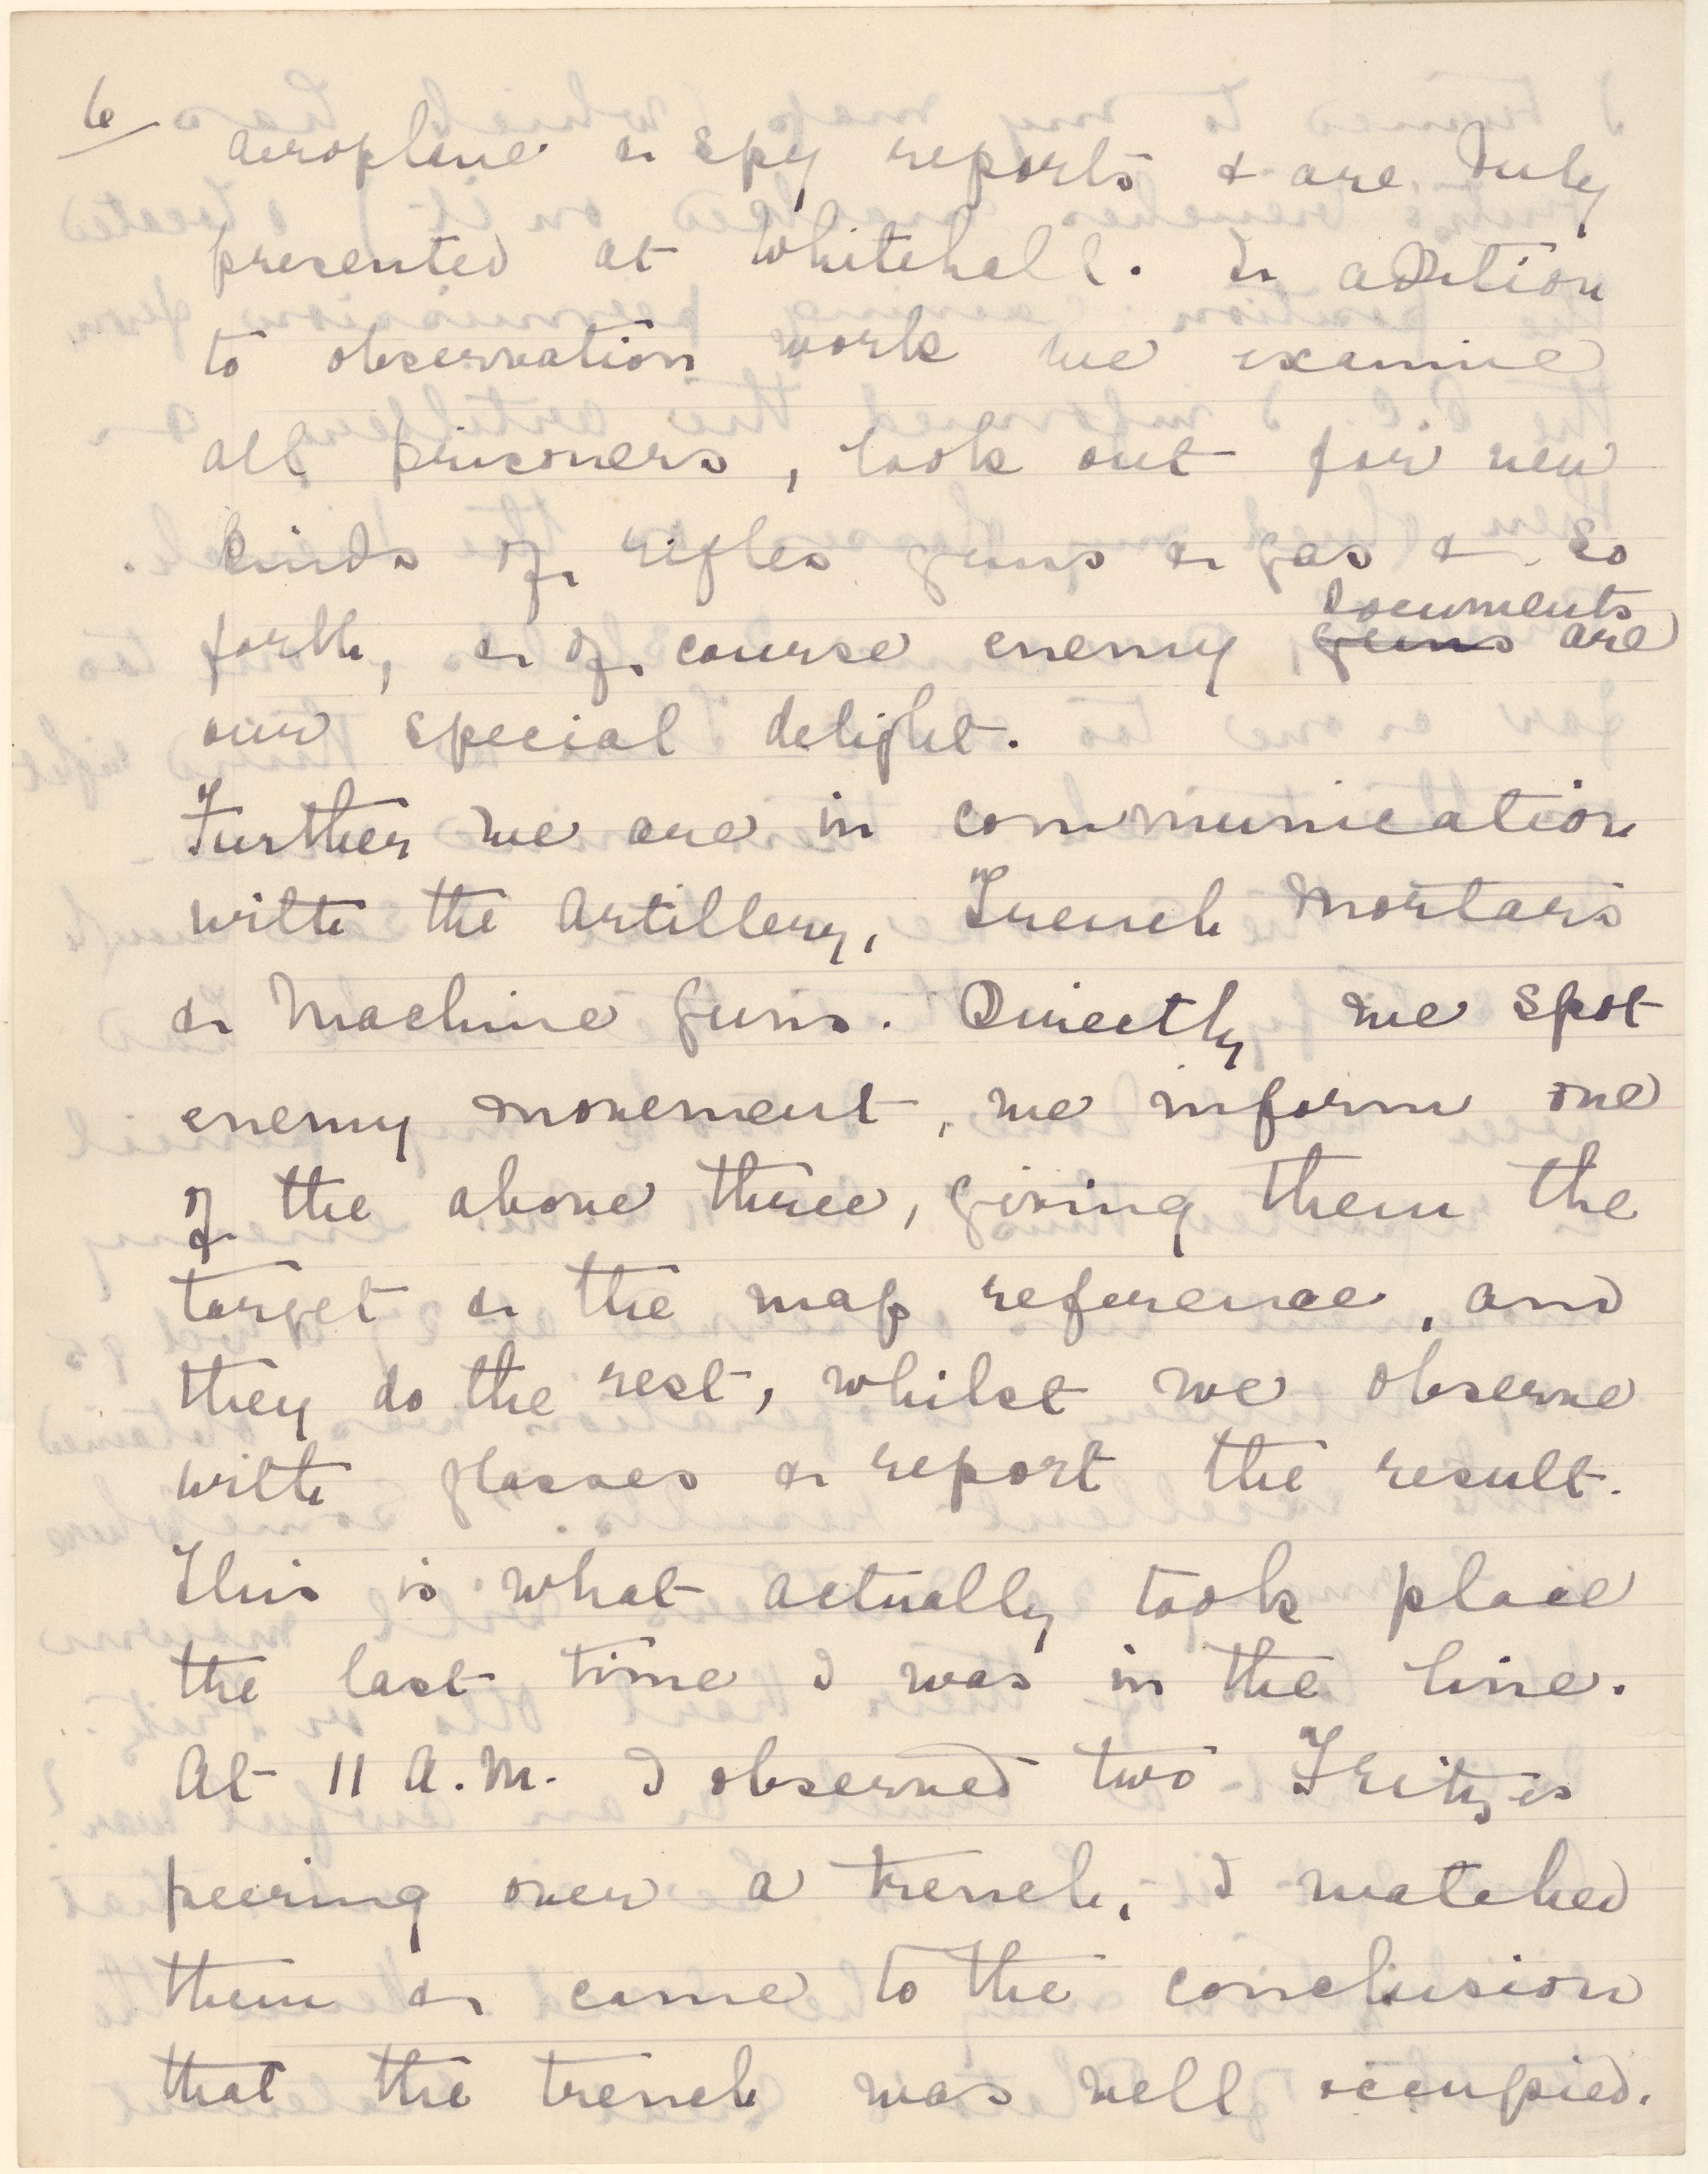 6/
aeroplane & spy reports & are duly
presented at Whitehall. In adition
to observation work we examine
all prisoners, look out for new
kinds of rifles guns & gas & so
forth, & of course enemy guns documents are
our special delight.
Further we are in communication
with the Artillery, Trench Mortars
& Machine Guns. Directly we spot
enemy movement, we inform one
of the above three, giving them the
target & the map reference, and
they do the rest, whilst we observe
with glasses & report the result.
This is what actually took place
the last time I was in the line.
At 11 A.M. I observed two Fritzes
peering over a trench, I watched
them & came to the conclusion
that the trench was well occupied.